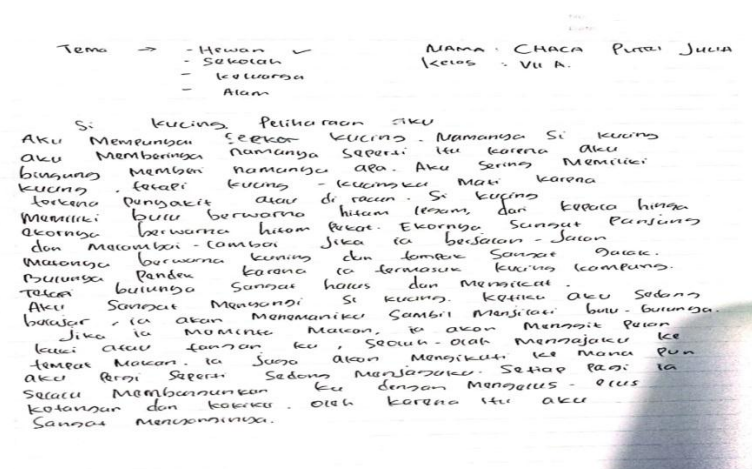 Tema → - Hewan ✓ NAMA : CHACA PUTRI JULIA
- Sekolah Kelas : VII A.
- Keluarga
- Alam
Si kucing Peliharaan aku
Aku Mempunyai seekor kucing. Namanya Si kucing
aku Memberinya namanya seperti itu karena aku
bingung Memberi namanya apa. Aku sering Memiliki
kucing, tetapi kucing - kucingku Mati karena
terkena penyakit atau di racun. Si kucing
Memiliki bulu berwarna hitam legam, dari kepala hingga
ekornya berwarna hitam pekat. Ekornya Sangat Panjang
dan Melambai - lambai Jika ia berjalan - Jalan
Matanya berwarna kuning dan tampak Sangat galak.
Bulunya Pendek karena ia termasuk kucing kampung.
Tetapi bulunya Sangat halus dan Mengkilat.
Aku Sangat Menyangi Si kucing. Ketika aku Sedang
belajar, ia akan Menemaniku Sambil Menjilati bulu-bulunya.
Jika ia Meminta Makan, ia akan Menggit Pelan
kaki atau tangan ku, Seolah-olah Mengajaku ke
tempat Makan. Ia Juga akan Mengikuti ke Mana Pun
aku Pergi Seperti Sedang Menjagaku. Setiap Pagi ia
Selalu Membangunkan ku dengan Mengelus - elus
ketangan dan kakiku. Oleh karena itu aku
Sangat Menyanginya.